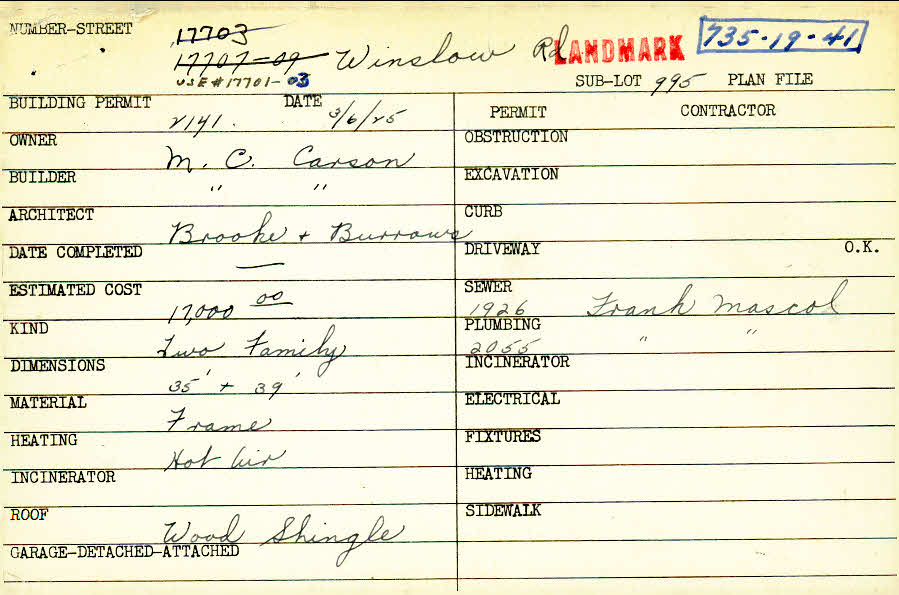 NUMBER-STREET 17703
17707-09 Winslow Rd. LANDMARK 735-19-41
USE #17701-03
SUB-LOT 995 PLAN FILE
BUILDING PERMIT 2141. DATE 3/6/25
OWNER M. C. Carson
BUILDER " "
ARCHITECT Brooke + Burrows
DATE COMPLETED —
ESTIMATED COST 17,000 00
KIND Two Family
DIMENSIONS 35' + 39'
MATERIAL Frame
HEATING Hot Air
INCINERATOR
ROOF Wood Shingle
GARAGE-DETACHED-ATTACHED
PERMIT CONTRACTOR
OBSTRUCTION
EXCAVATION
CURB
DRIVEWAY O.K.
SEWER 1926 Frank Mascol
PLUMBING 2055 " "
INCINERATOR
ELECTRICAL
FIXTURES
HEATING
SIDEWALK